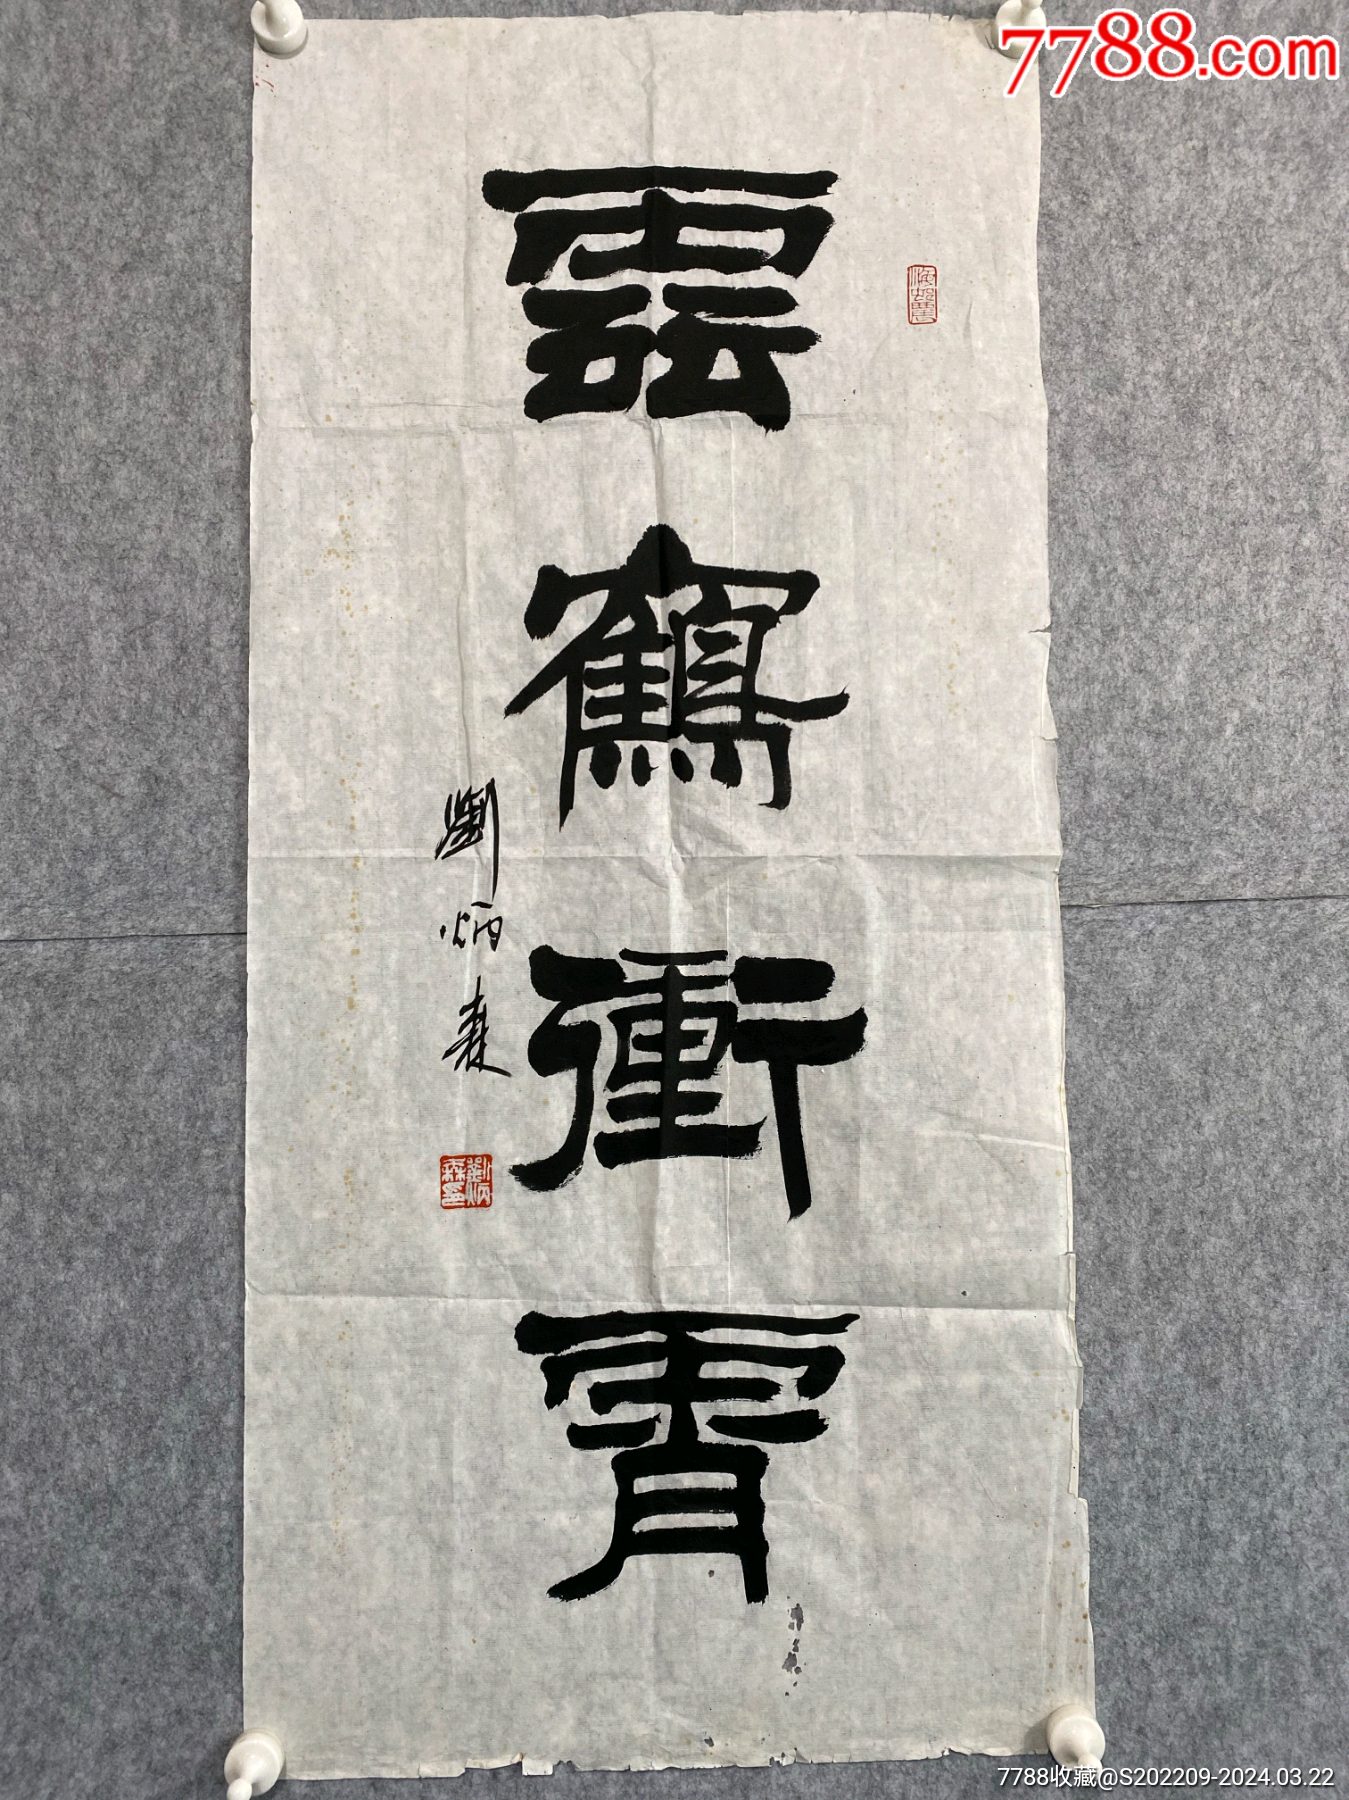 7788.com
海邨農
雲鶴衝霄
劉炳森
劉炳森印
7788收藏@S202209-2024.03.22